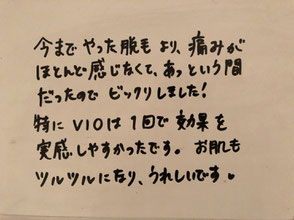 今までやった脱毛より、痛みが
ほとんど感じなくて、あっという間
だったので ビックリしました!
特に VIOは1回で効果を
実感しやすかったです。お肌も
ツルツルになり、うれしいです。